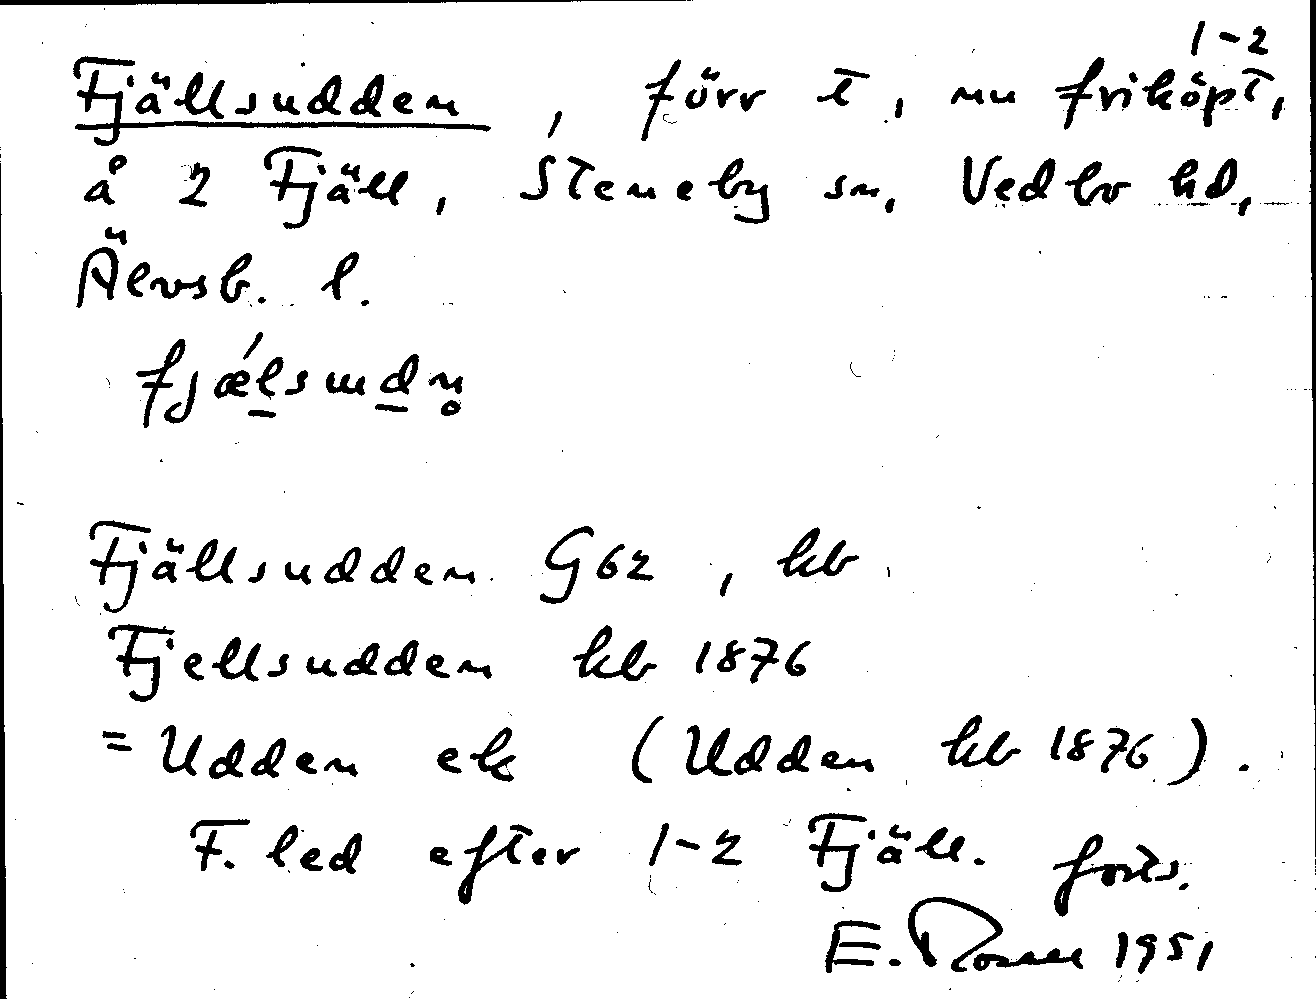 1-2
Fjällsudden, förr t, nu friköpt,
å 2 Fjäll, Steneby sn, Vedbo hd,
Älvsb. l.
fjǽlsɯdn̥
Fjällsudden G62, kb
Fjellsudden kb 1876
= Udden ek (Udden kb 1876).
F. led efter 1-2 Fjäll. forts.
E. Rosell 1951